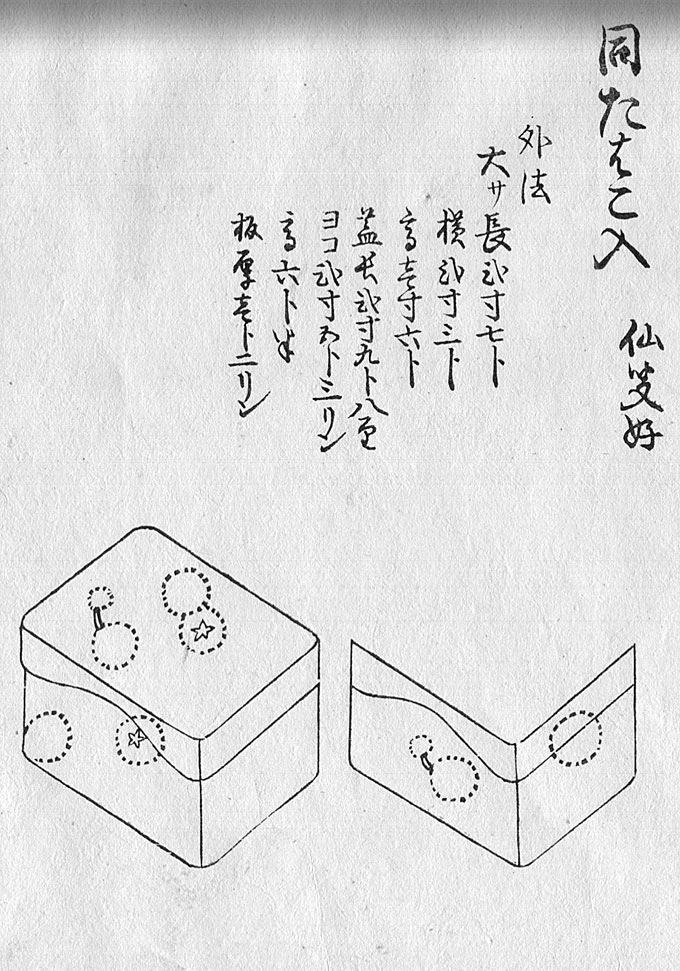 同たはこ入 仙叟好
外法
大サ長弐寸七ト
横弐寸三ト
高壱寸六ト
蓋長弐寸九ト八
ヨコ弐寸五ト三リン
高六ト半
板厚壱ト二リン